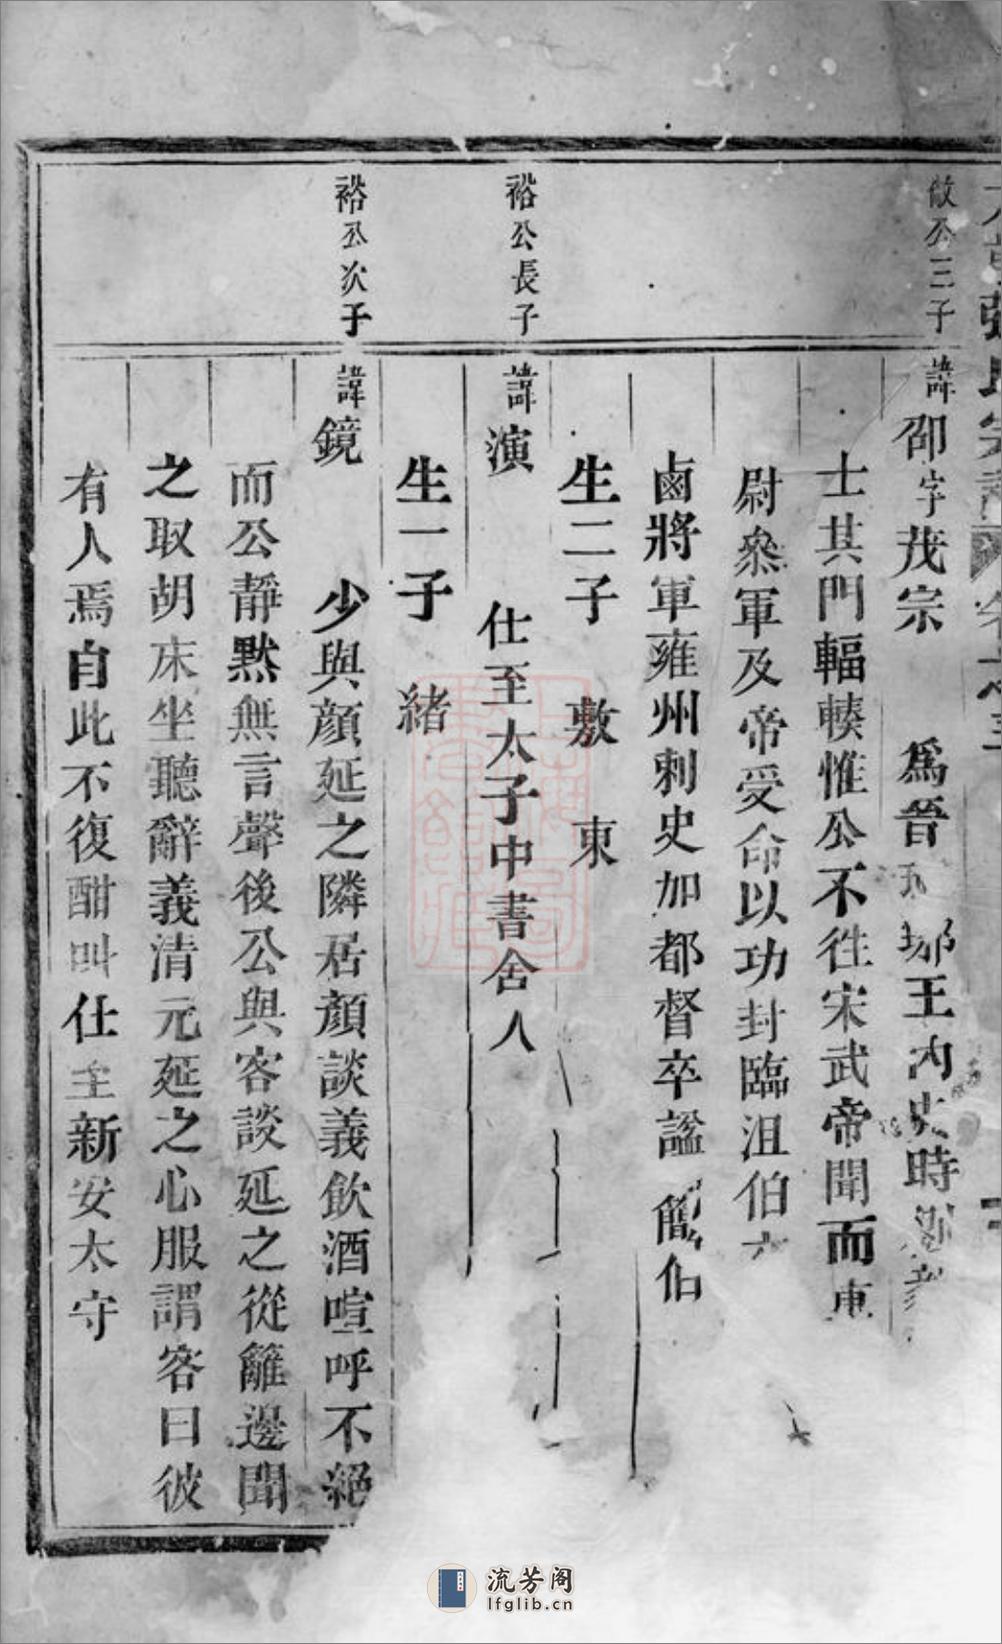 張氏宗譜 卷之三
敞公三子 諱邵字茂宗 為晉琅琊王內史時劉
士其門輻輳惟公不徃宋武帝聞而
尉叅軍及帝受命以功封臨沮伯
鹵將軍雍州刺史加都督卒謚簡伯
生二子 敷 東
裕公長子 諱演 仕至太子中書舍人
生一子 緒
裕公次子 諱鏡 少與顔延之隣居顔談義飲酒喧呼不絕
而公靜默無言聲後公與客談延之從籬邊聞
之取胡床坐聽辭義清元延之心服謂客曰彼
有人焉自此不復酣叫仕至新安太守
流芳阁
lfglib.cn